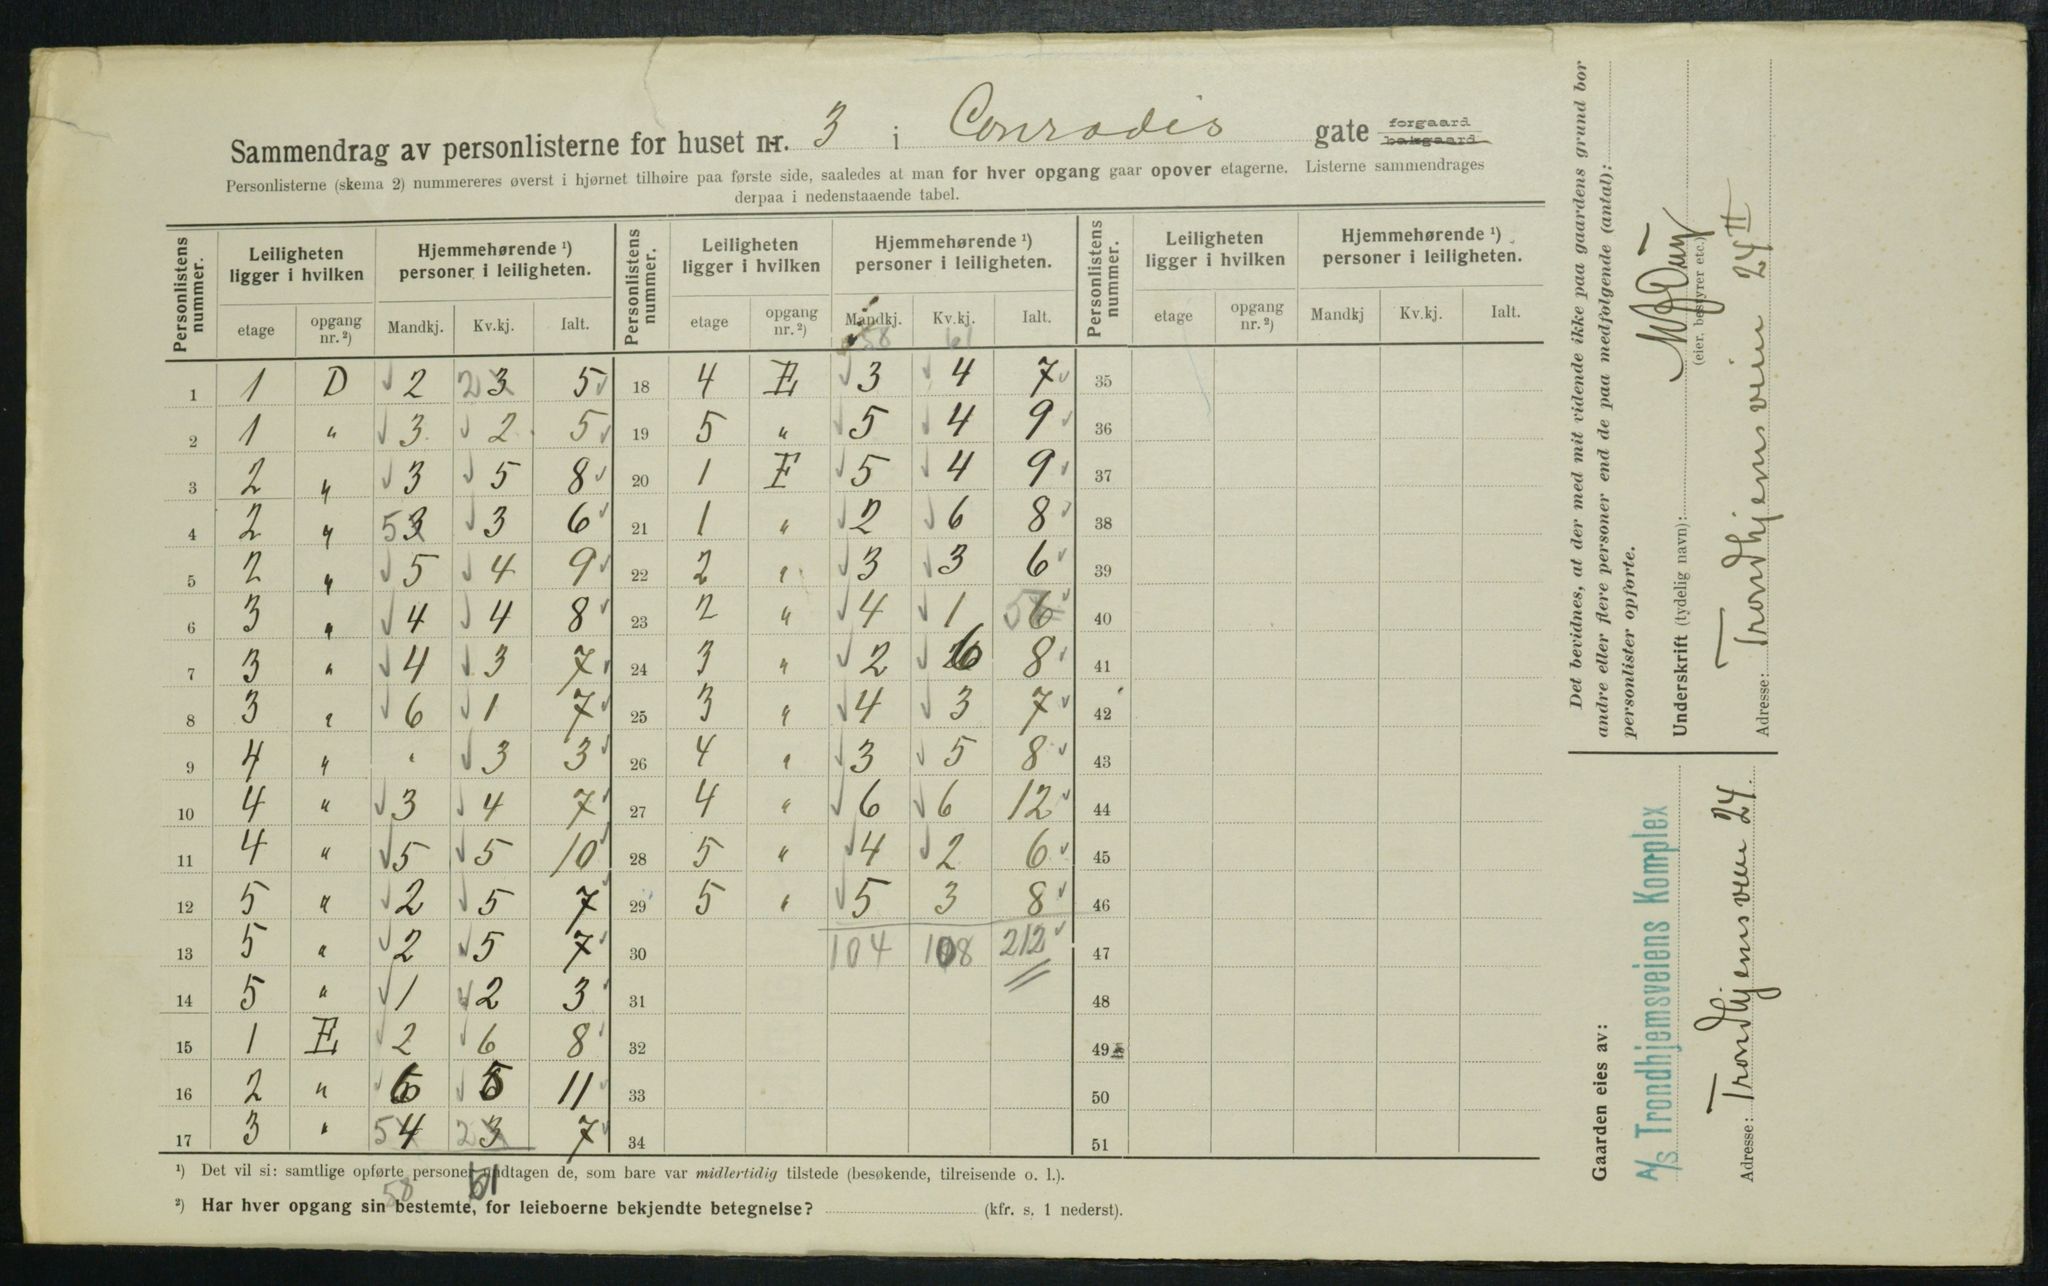 Sammendrag av personlisterne for huset nr. 3 i Conradis gate forgaard bakgaard
Personlisterne (skema 2) nummereres øverst i hjørnet tilhøire paa første side, saaledes at man for hver opgang gaar opover etagerne. Listerne sammendrages
derpaa i nedenstaaende tabel.
Personlistens nummer. Leiligheten ligger i hvilken Hjemmehørende ¹) personer i leiligheten. Personlistens nummer. Leiligheten ligger i hvilken Hjemmehørende ¹) personer i leiligheten. Personlistens nummer. Leiligheten ligger i hvilken Hjemmehørende ¹) personer i leiligheten.
etage opgang nr. ²) Mandkj. Kv.kj. Ialt. etage opgang nr. ²) Mandkj. Kv.kj. Ialt. etage opgang nr. ²) Mandkj Kv.kj. Ialt.
58 61
1 1 D 2 2 3 5 18 4 E 3 4 7 35
2 1 " 3 2 5 19 5 " 5 4 9 36
3 2 " 3 5 8 20 1 F 5 4 9 37
4 2 " 5 3 3 6 21 1 " 2 6 8 38
5 2 " 5 4 9 22 2 " 3 3 6 39
6 3 " 4 4 8 23 2 " 4 1 5 6 40
7 3 " 4 3 7 24 3 " 2 6 8 41
8 3 " 6 1 7 25 3 " 4 3 7 42
9 4 " " 3 3 26 4 " 3 5 8 43
10 4 " 3 4 7 27 4 " 6 6 12 44
11 4 " 5 5 10 28 5 " 4 2 6 45
12 5 " 2 5 7 29 5 " 5 3 8 46
13 5 " 2 5 7 30 104 108 212 47
14 5 " 1 2 3 31 48
15 1 E 2 6 8 32 49
16 2 " 6 5 11 33 50
17 3 " 5 4 2 3 7 34 51
¹) Det vil si: samtlige opførte personer undtagen de, som bare var midlertidig tilstede (besøkende, tilreisende o. l.).
58 61
²) Har hver opgang sin bestemte, for leieboerne bekjendte betegnelse? (kfr. s. 1 nederst).
Det bevidnes, at der med mit vidende ikke paa gaardens grund bor
andre eller flere personer end de paa medfølgende (antal):
personlister opførte.
Underskrift (tydelig navn):
(eier, bestyrer etc.)
Adresse: Trondhjemsveien 24 II
Gaarden eies av:
A/S Trondhjemsveiens Komplex
Adresse: Trondhjemsveien 24.